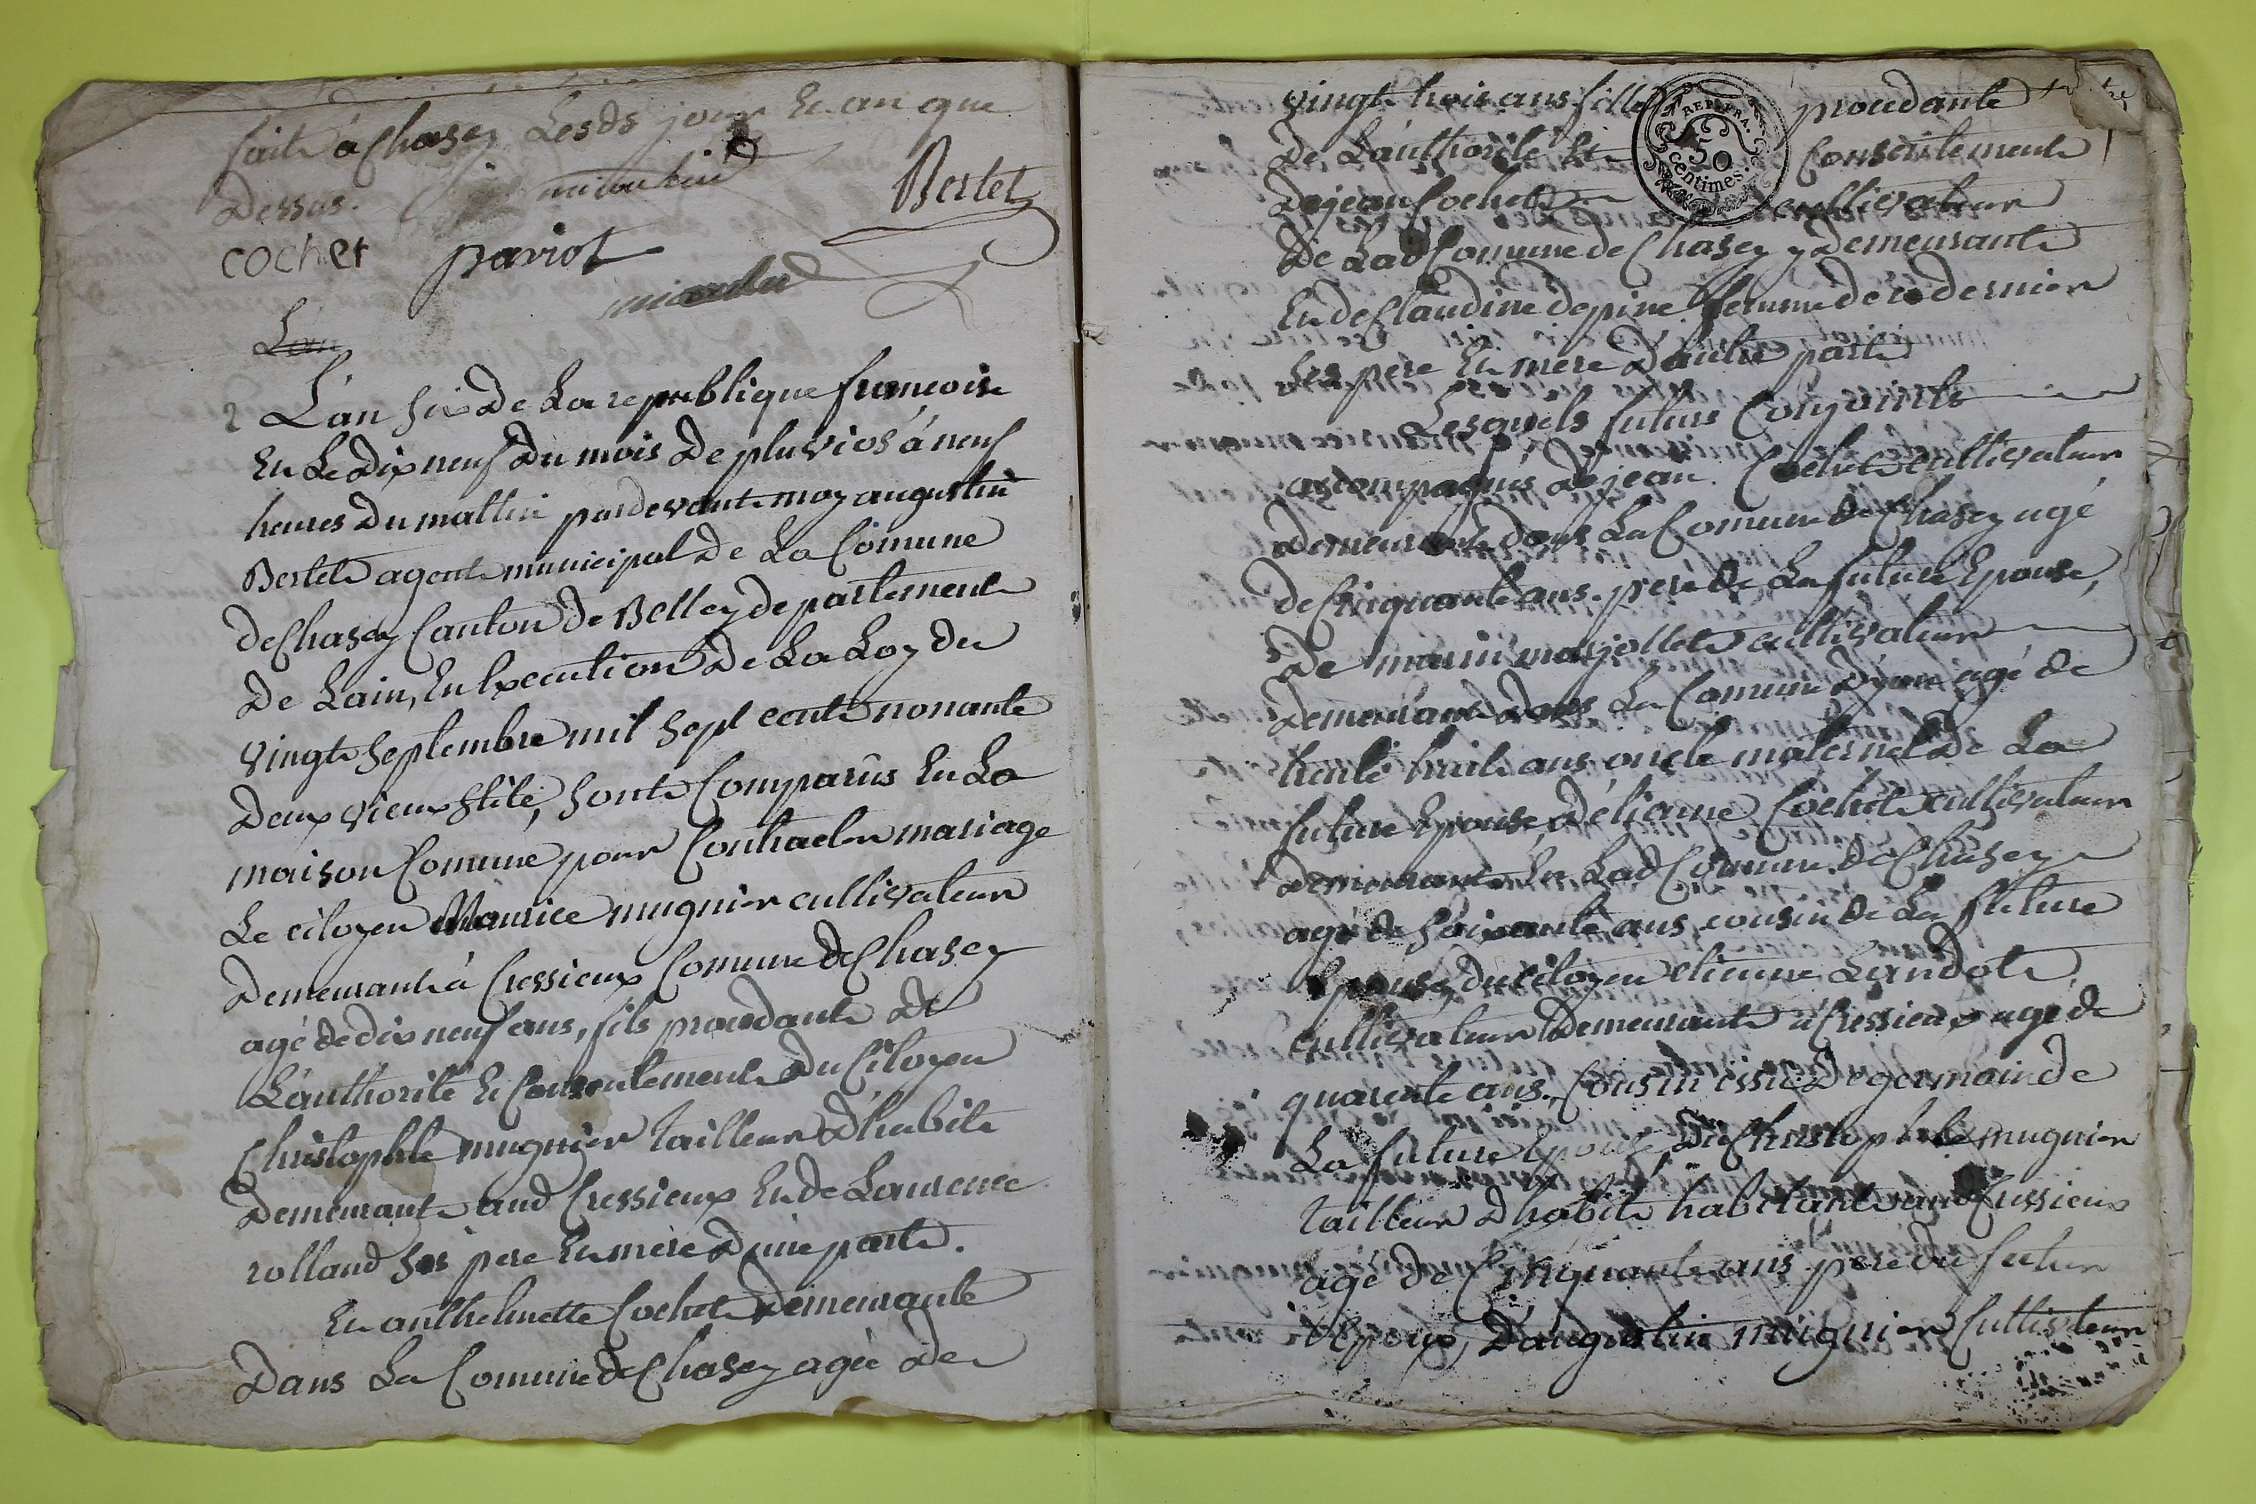 fait à Chasey Lesds jour Et an que
Dessus.
Bertet
cochet paviot
L'an
2 L'an six De La republique francoise
Et Le Dix neuf Du mois De pluvios á neuf
heures Du mattin pardevant moy augustin
Bertet agent municipal De La Comune
De Chasey Canton de Belley departement
De Lain, En Execution De La Loy du
vingt septembre mil sept cent nonante
Deux vieux stile, sont Comparûs En La
maison Comune pour Contracter mariage
Le citoyen Maurice mugnier cultivateur
Demeurant à Cressieux Comune de Chasey
agé de dix neuf ans, fils procedant de
L'authorité Et Consentement du Citoyen
Christophle mugnier tailleur d'habit
Demeurant aud Cressieux Et de Laurence
rolland ses pere Et mere D'une part.
Et anthelmette Cochet Demeurante
Dans La Comune de Chasey agée de
vingt trois ans fille procedante
De L'authorité Et Consentement
De jean Cochet cultivateur
De Lad Comune de Chasey y demeurant
Et de Claudine depine femme de ce dernier
ses pere Et mere D'autre part
Lesquels futurs Conjoints
accompagnés De jean Cochet cultivateur
Demeurant dans La Comune de Chasey agé
de Cinquante ans pere de La future Epouse,
De marin marjollet cultivateur
Demeurant Dans La Comune D'yon agé de
trente huit ans oncle maternel De La
future Epouse, D'étienne Cochet cultivateur
Demeurant En Lad Comune de Chasey
agé de soixante ans cousin de La future
Epouse, du citoyen etienne Landot
cultivateur Demeurant à Cressieux agé de
quarente ans, Cousin issu De germain de
La future Epouse, Du Christophle mugnier
tailleur d'habit habitant aud Cressieux
agé de Cinquante ans pere du futur
Epoux, D'augustin mugnier Cultivateur
REP. FRA.
50
centimes.